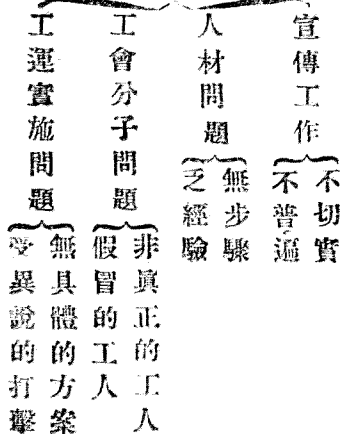 宣傳工作
不切實
不普遍
人材問題
無步驟
乏經驗
工會分子問題
非眞正的工人
假冒的工人
工運實施問題
無具體的方案
受異說的打擊